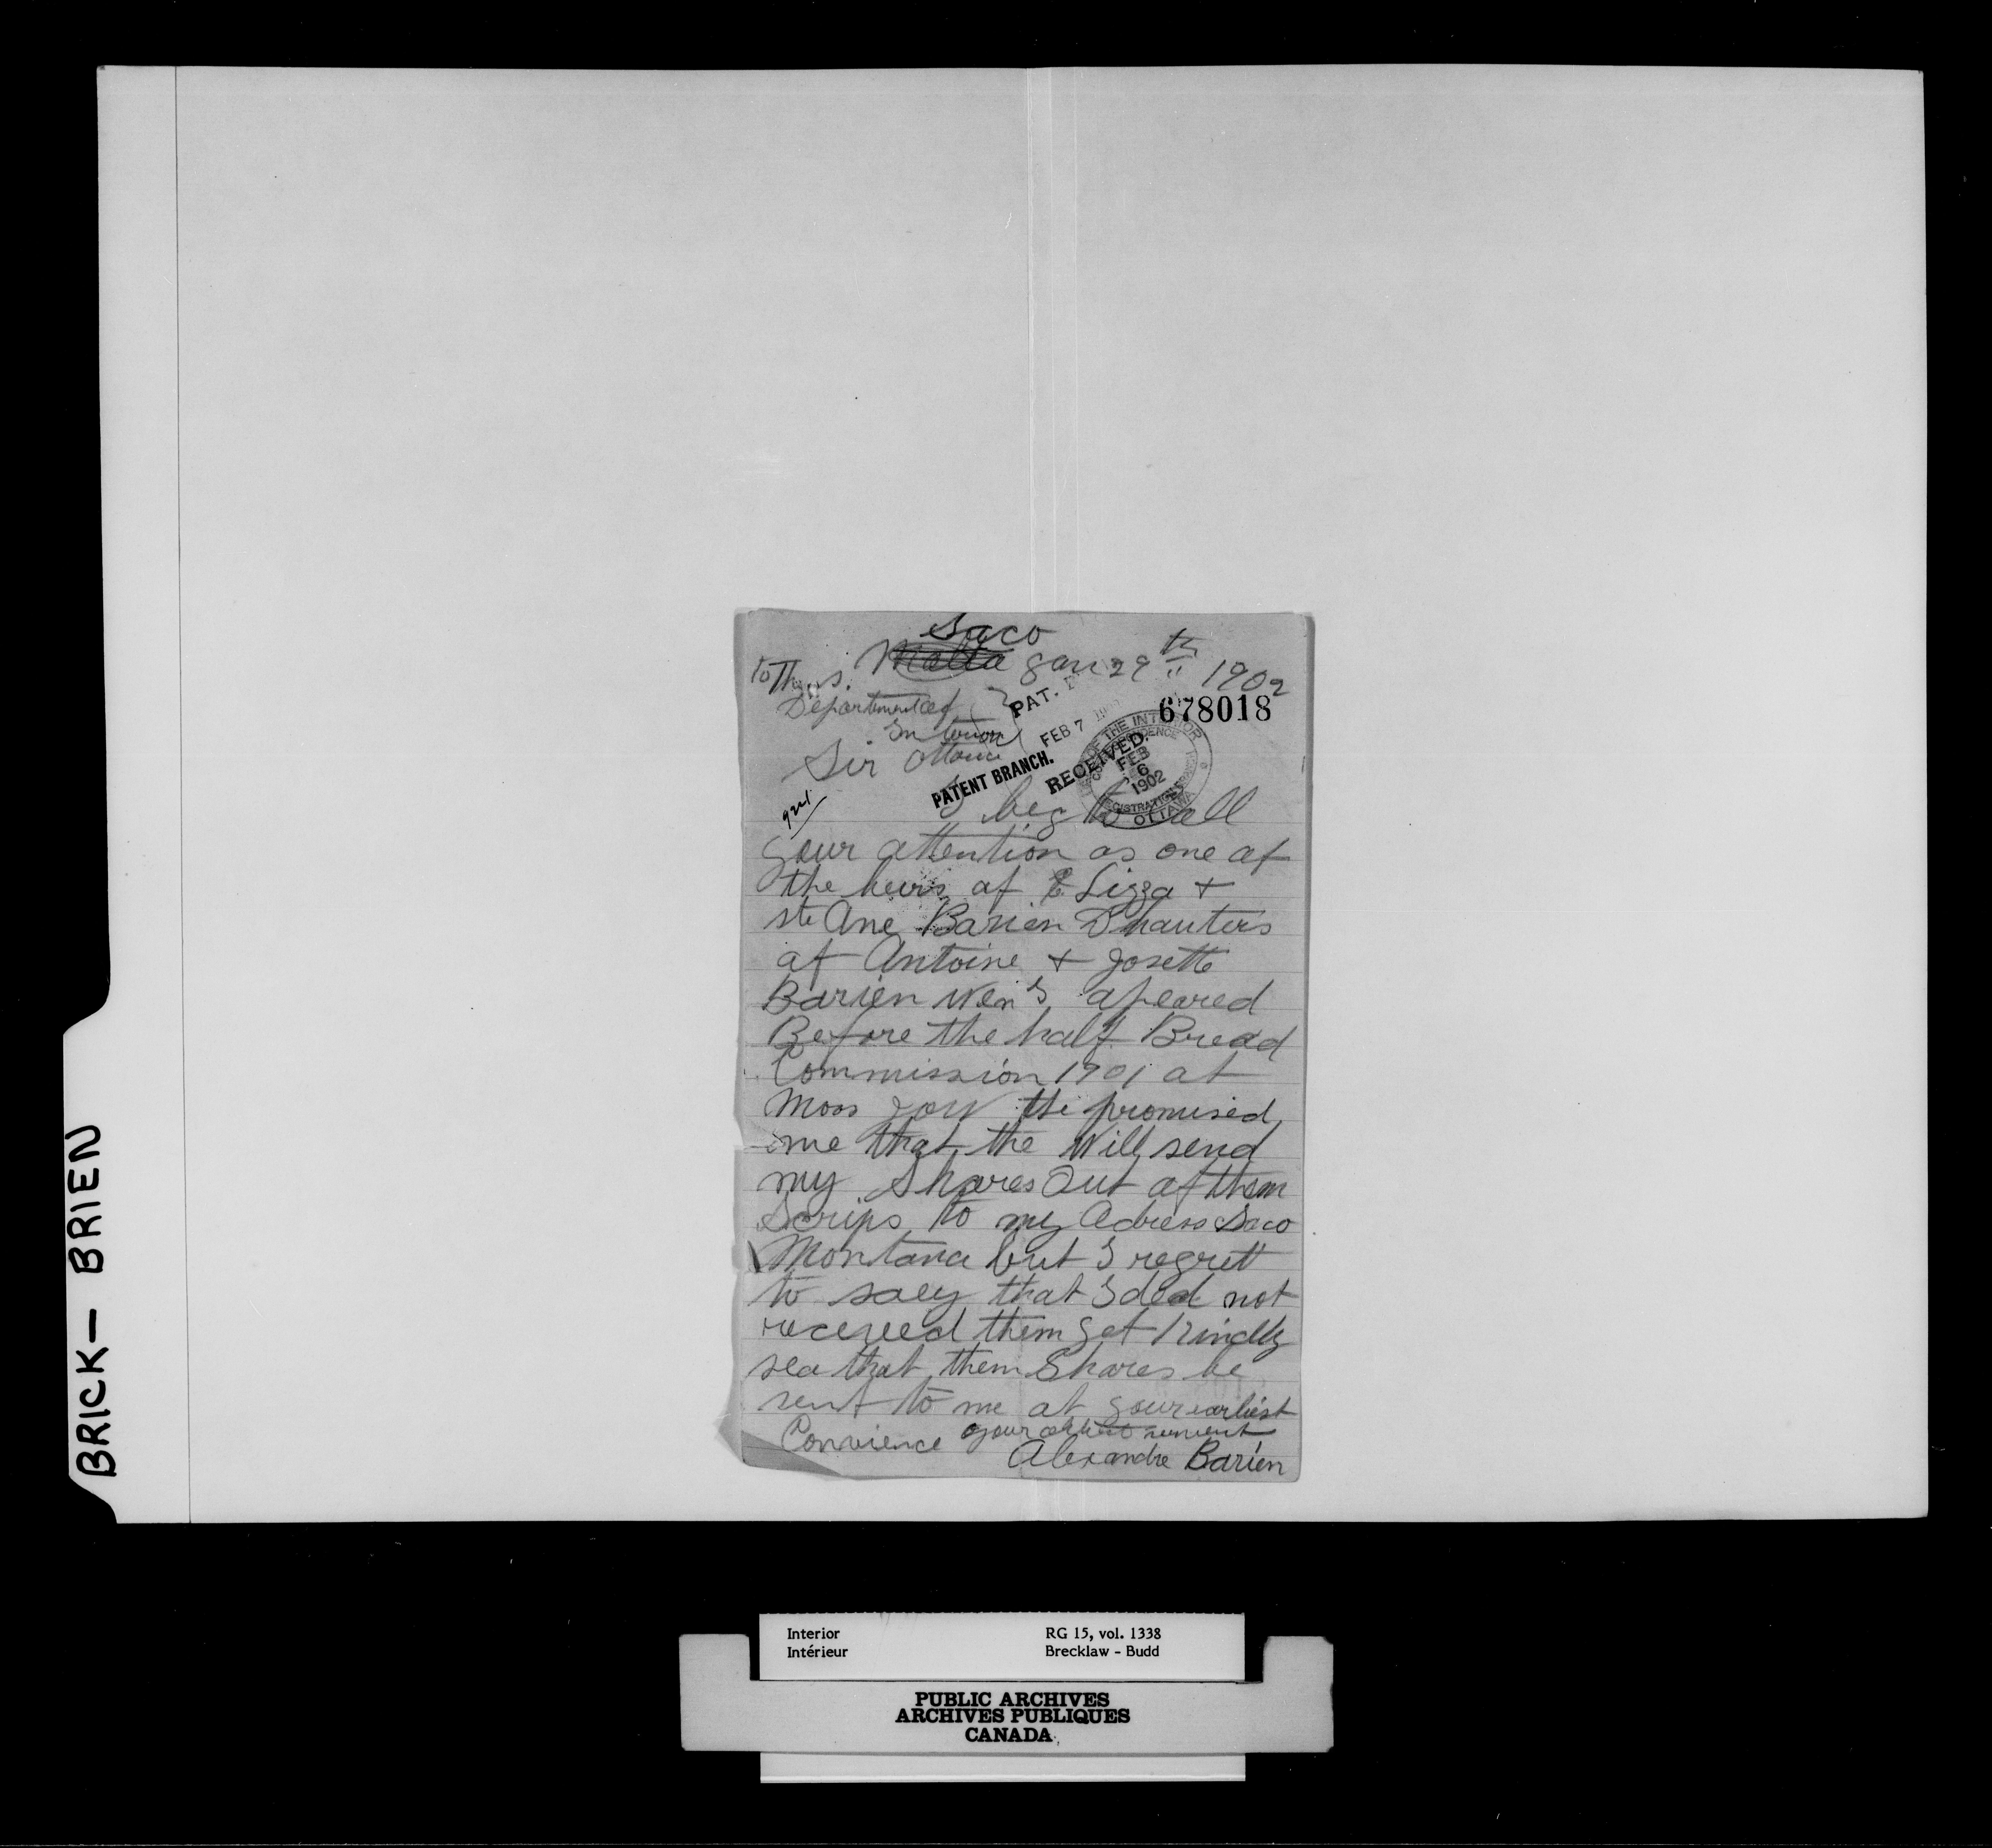 Saco
Malta Jan 29th 1902
To The
Department of
Interior
Ottawa
Sir
PAT.
FEB 7
678018
PATENT BRANCH.
RECEIVED.
OF THE INTERIOR
FEB
6
1902
REGISTRATION
OTTAWA
I beg to call
your attention as one af
the heirs af E Lizza +
ste Ane Barien Dhauters
af Antoine + Josette
Barien Wen I apeared
Before the half Bread
Commission 1901 at
Moos Jow the promised
me that the Will send
my Shares Out af them
Scrips to my Adress Saco
Montana but I regrett
to saey that I ded not
receyeed them yet Kindly
sea that them Shares be
sent to me at your earliest
Convience your servent
Alexandre Barien
BRICK - BRIEN
Interior RG 15, vol. 1338
Intérieur Brecklaw - Budd
PUBLIC ARCHIVES
ARCHIVES PUBLIQUES
CANADA